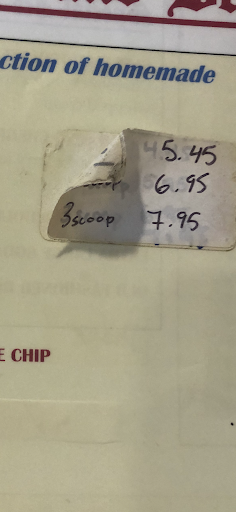 ction of homemade
5.45
6.95
3scoop 7.95
E CHIP